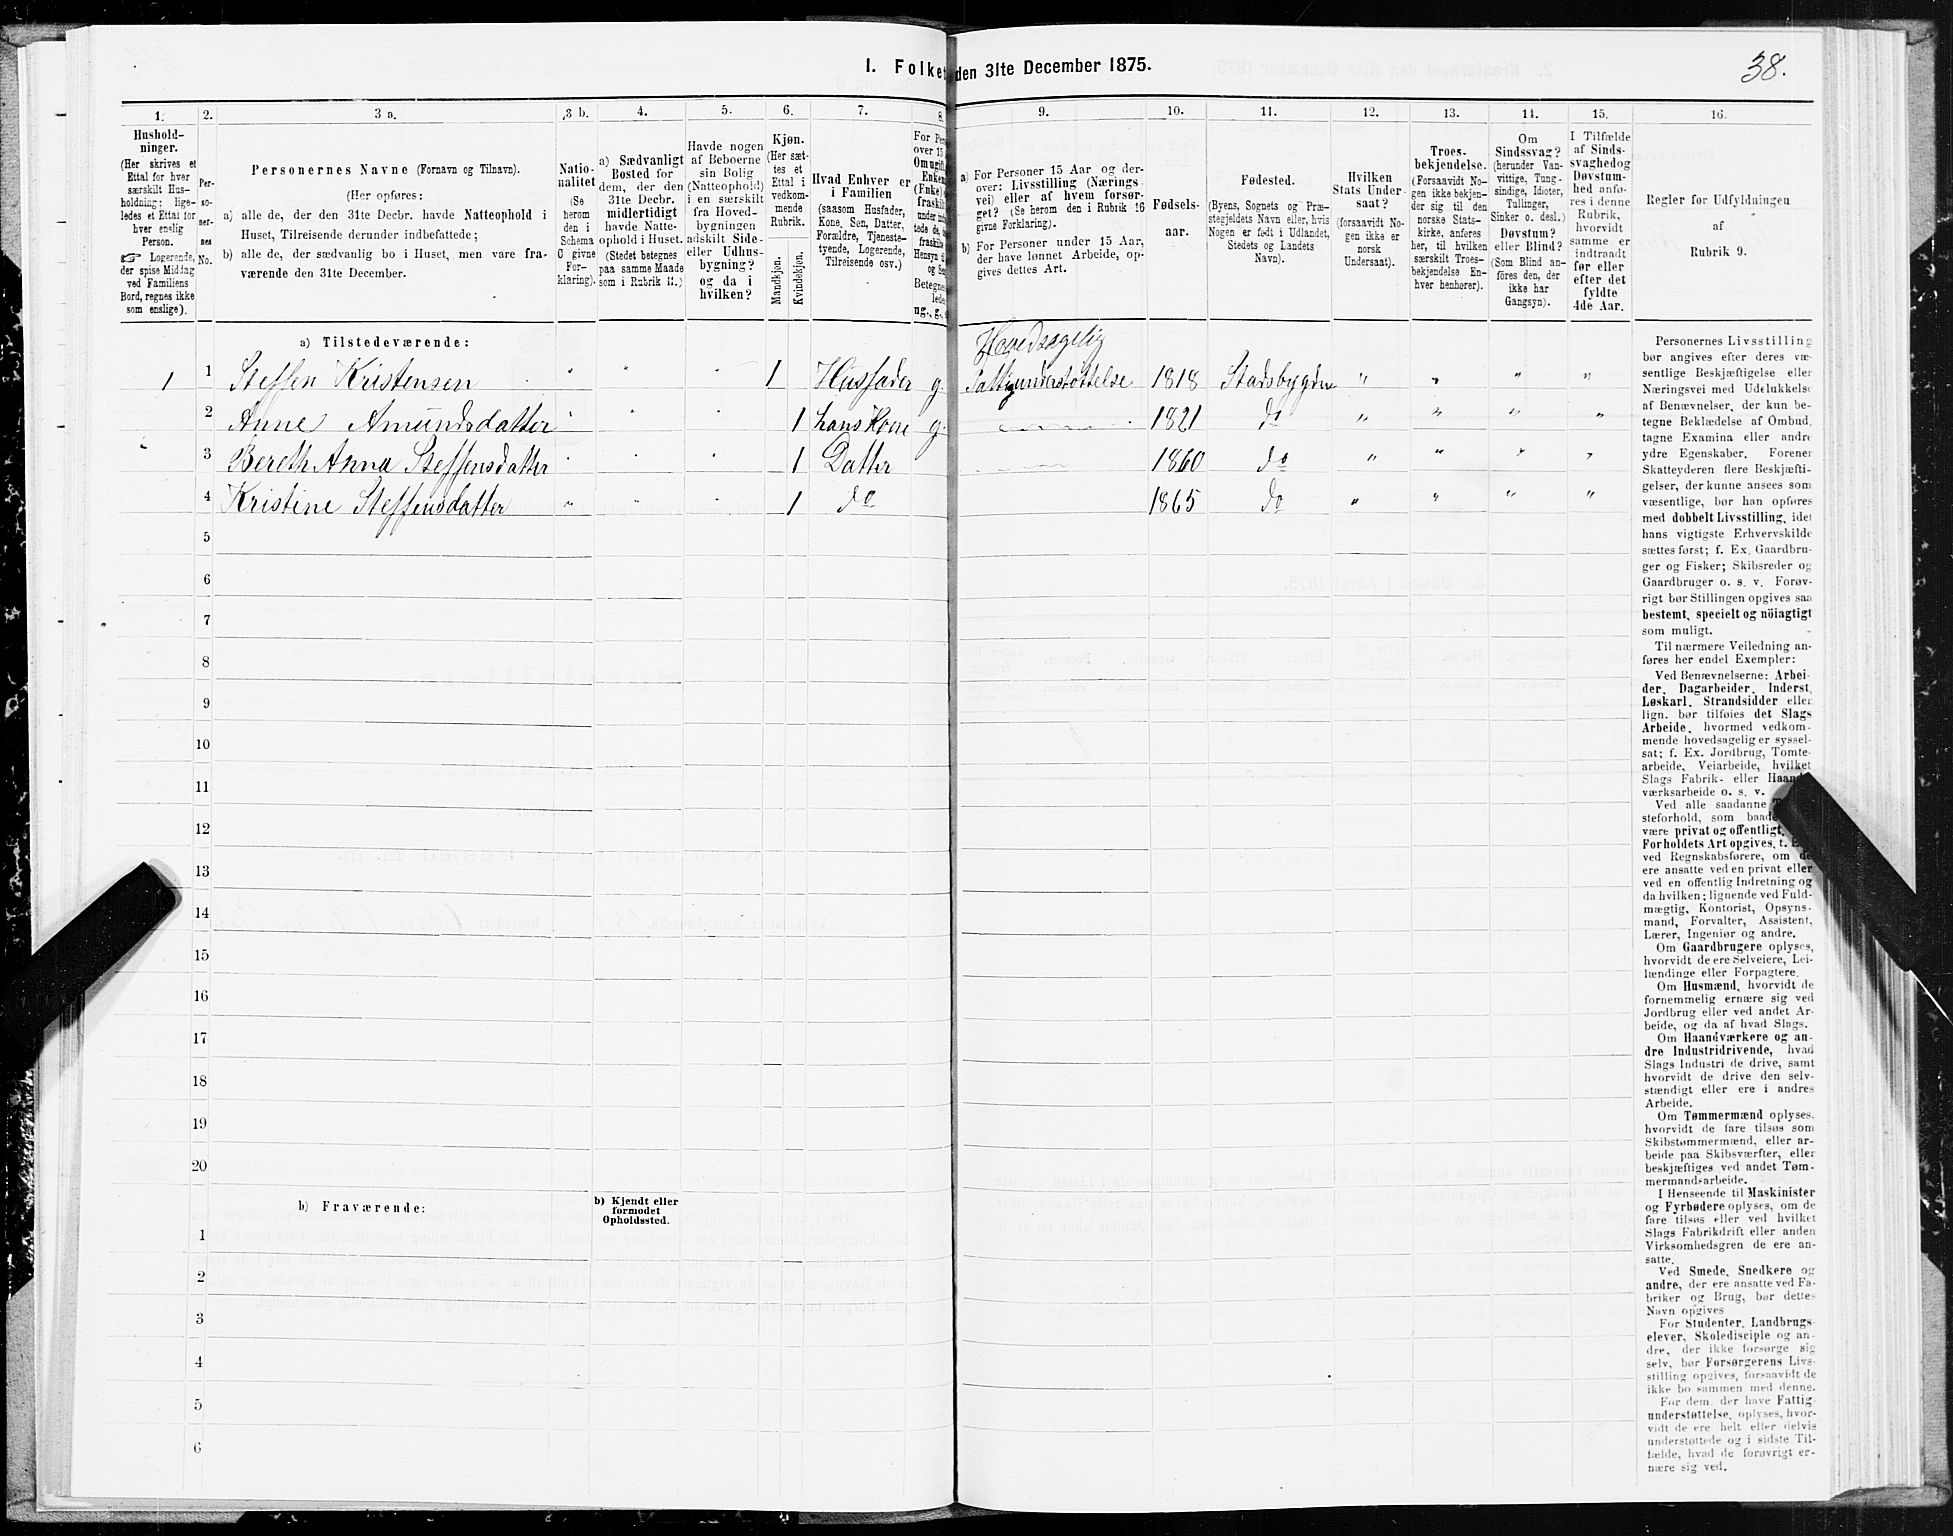 I. Folket
den 31te December 1875.
38.
1.
Hushold-
ninger.
(Her skrives et
Ettal for hver
særskilt Hus-
holdning; lige-
ledes et Ettal for
hver enslig
Person.
☞ Logerende,
der spise Middag
ved Familiens
Bord, regnes ikke
som enslige).
2.
Per-
so-
ner-
nes
No.
3 a.
Personernes Navne (Fornavn og Tilnavn).
(Her opføres:
a) alle de, der den 31te Decbr. havde Natteophold i
Huset, Tilreisende derunder indbefattede;
b) alle de, der sædvanlig bo i Huset, men vare fra-
værende den 31te December.
3 b.
Natio-
nalitet
(Se
herom
den i
Schema
C givne
For-
klaring).
4.
a) Sædvanligt
Bosted for
dem, der den
31te Decbr.
midlertidigt
havde Natte-
ophold i Huset.
(Stedet betegnes
paa samme Maade
som i Rubrik 11.)
5.
Havde nogen
af Beboerne
sin Bolig
(Natteophold)
i en særskilt
fra Hoved-
bygningen
adskilt Side-
eller Udhus-
bygning?
og da i
hvilken?
6.
Kjøn.
(Her sæt-
tes et
Ettal i
vedkom-
mende
Rubrik.
Mandkjøn.
Kvindekjøn.
7.
Hvad Enhver er
i Familien
(saasom Husfader,
Kone, Søn, Datter,
Forældre, Tjeneste-
tyende, Logerende,
Tilreisende osv.)
8.
For Per
over 15
Om ugift
Enken
(Fnke)
fraskilt
9.
a) For Personer 15 Aar og der-
over: Livsstilling (Nærings
vei) eller af hvem forsør-
get? (Se herom den i Rubrik 16
givne Forklaring).
b) For Personer under 15 Aar,
der have lønnet Arbeide, op-
gives dettes Art.
10.
Fødsels-
aar.
11.
Fødested.
(Byens, Sognets og Præ-
stegjeldets Navn eller, hvis
Nogen er født i Udlandet,
Stedets og Landets
Navn).
12.
Hvilken
Stats Under-
saat?
(forsaavidt No-
gen ikke er
norsk
Undersaat).
13.
Troes-
bekjendelse.
(Forsaavidt No-
gen ikke bekjen-
der sig til den
norske Stats-
kirke, anføres
her, til hvilken
særskilt Troes-
bekjendelse En-
hver henhører).
14.
Om
Sindssvag?
(herunder Van-
vittige, Tung-
sindige, Idioter,
Tullinger,
Sinker o. desl.)
Døvstum?
eller Blind?
(Som Blind an-
føres den, der
ikke har
Gangsyn).
15.
I Tilfælde
af Sinds-
svaghed og
Døvstum-
hed anfø-
res i denne
Rubrik,
hvorvidt
samme er
indtraadt
før eller
efter det
fyldte
4de Aar.
16.
Regler for Udfyldningen
af
Rubrik 9.
a) Tilstedeværende:
Hovedsagelig
1 1 Steffen Kristensen " " " 1 Husfader g. Fattigunderstøttelse 1818 Stadsbygden " " " "
2 Anne Amundsdatter " " " 1 hans Kone g. 1821 do " " " "
3 Bereth Anna Steffensdatter " " " 1 Datter 1860 do " " " "
4 Kristine Steffensdatter " " " 1 do 1865 do " " " "
5
6
7
8
9
10
11
12
13
14
15
16
17
18
19
20
b) Fraværende:
b) Kjendt eller
formodet
Opholdssted.
1
2
3
4
5
6
Personernes Livsstilling
bør angives efter deres væ-
sentlige Beskjæftigelse eller
Næringsvei med Udelukkelse
af Benævnelser, der kun be-
tegne Beklædelse af Ombud,
tagne Examina eller andre
ydre Egenskaber. Forener
Skatteyderen flere Beskjæfti-
gelser, der kunne ansees som
væsentlige, bør han opføres
med dobbelt Livsstilling, idet
hans vigtigste Erhvervskilde
sættes først; f. Ex. Gaardbru-
ger og Fisker; Skibsreder og
Gaardbruger o. s. v. Forøv-
rigt bør Stillingen opgives saa
bestemt, specielt og nöiagtigt
som muligt.
Til nærmere Veiledning an-
føres her endel Exempler:
Ved Benævnelserne: Arbei-
der, Dagarbeider, Inderst,
Løskarl, Strandsidder eller
lign. bør tilføies det Slags
Arbeide, hvormed vedkom-
mende hovedsagelig er syssel-
sat; f. Ex. Jordbrug, Tomte-
arbeide, Veiarbeide, hvilket
Slags Fabrik- eller Haand-
værksarbeide o. s. v.
Ved alle saadanne
steforhold, som baade
være privat og offentligt,
Forholdets Art opgives, t.
ved Regnskabsførere, om de
ere ansatte ved en privat eller
ved en offentlig Indretning og
da hvilken; lignende ved Fuld-
mægtig, Kontorist, Opsyns-
mand, Forvalter, Assistent,
Lærer, Ingeniør og andre.
Om Gaardbrugere oplyses,
hvorvidt de ere Selveiere, Lei-
lændinge eller Forpagtere.
Om Husmænd, hvorvidt de
fornemmelig ernære sig ved
Jordbrug eller ved andet Ar-
beide, og da af hvad Slags.
Om Haandværkere og an-
dre Industridrivende, hvad
Slags Industri de drive, samt
hvorvidt de drive den selv-
stændigt eller ere i andres
Arbeide.
Om Tømmermænd oplyses,
hvorvidt de fare tilsøs som
Skibstømmermænd, eller ar-
beide paa Skibsværfter, eller
beskjæftiges ved andet Tøm-
mermandsarbeide.
I Henseende til Maskinister
og Fyrbødere oplyses, om de
fare tilsøs eller ved hvilket
Slags Fabrikdrift eller anden
Virksomhedsgren de ere an-
satte.
Ved Smede, Snedkere og
andre, der ere ansatte ved Fa-
briker og Brug, bør dettes
Navn opgives
For Studenter, Landbrugs-
elever, Skoledisciple og an-
dre, der ikke forsørge sig
selv, bør Forsørgerens Livs-
stilling opgives, forsaavidt de
ikke bo sammen med denne.
For dem, der have Fattig-
understøttelse, oplyses, hvor-
vidt de ere helt eller delvis
understøttede og i sidste Til-
fælde, hvad de forøvrigt er-
nære sig ved.